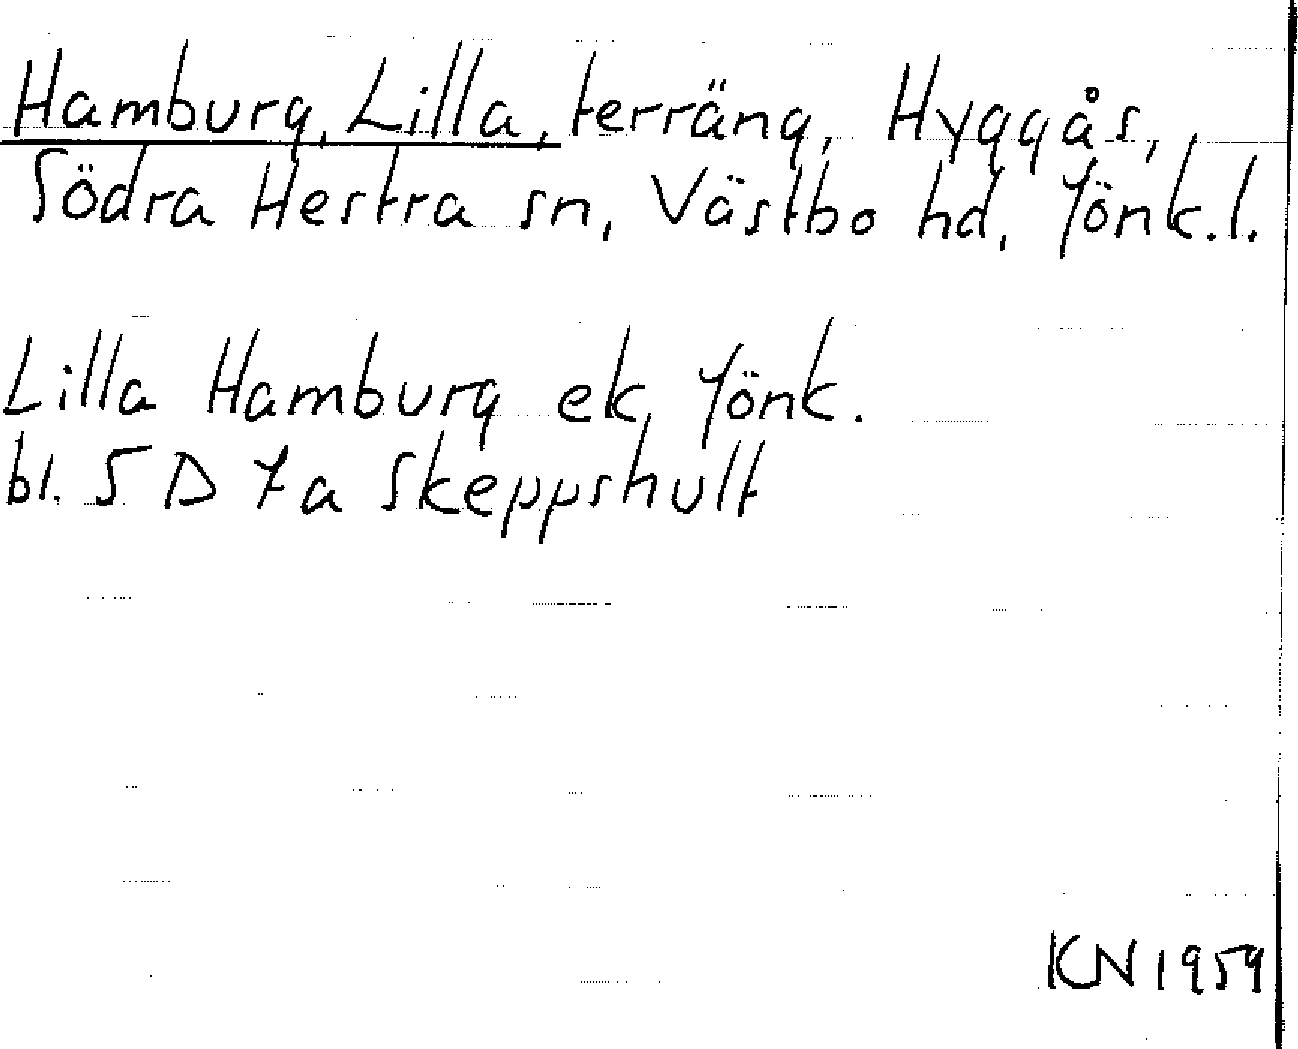 Hamburg, Lilla, terräng, Hyggås,
Södra Hestra sn, Västbo hd, Jönk.l.
Lilla Hamburg ek Jönk.
bl. 5 D 7a Skeppshult
KN 1959